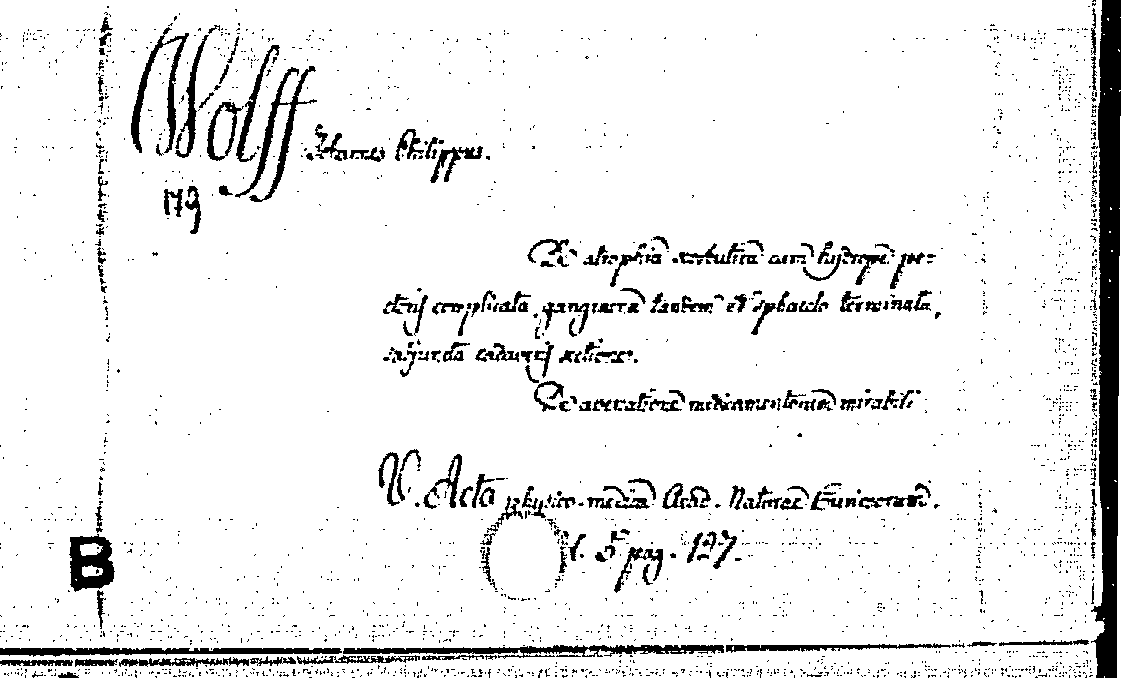 Wolff
Joannes Philippus.
179
De atrophia scorbutica cum hydrope pec-
toris complicata, gangraena tandem et sphacelo terminata,
adjuncta cadaveris sectione.
De operatione medicamentorum mirabili
V. Acta physico-medica Acad. Naturae Curiosorum.
5 pag. 127.
B